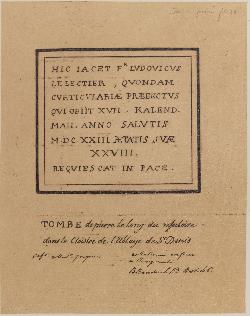 HIC IACET Fʳ LUDOVICUS
LE LECTIER, QUONDAM
CURTICULARIÆ PRÆFECTUS
QUI OBIIT XVII. KALEND.
MAII. ANNO SALUTIS
M·DC·XXIII ÆTATIS SUÆ
XXVIII.
REQUIESCAT IN PACE.
TOMBE de pierre le long du refectoire
dans le Cloistre de l'Abbaye de Sᵗ Denis